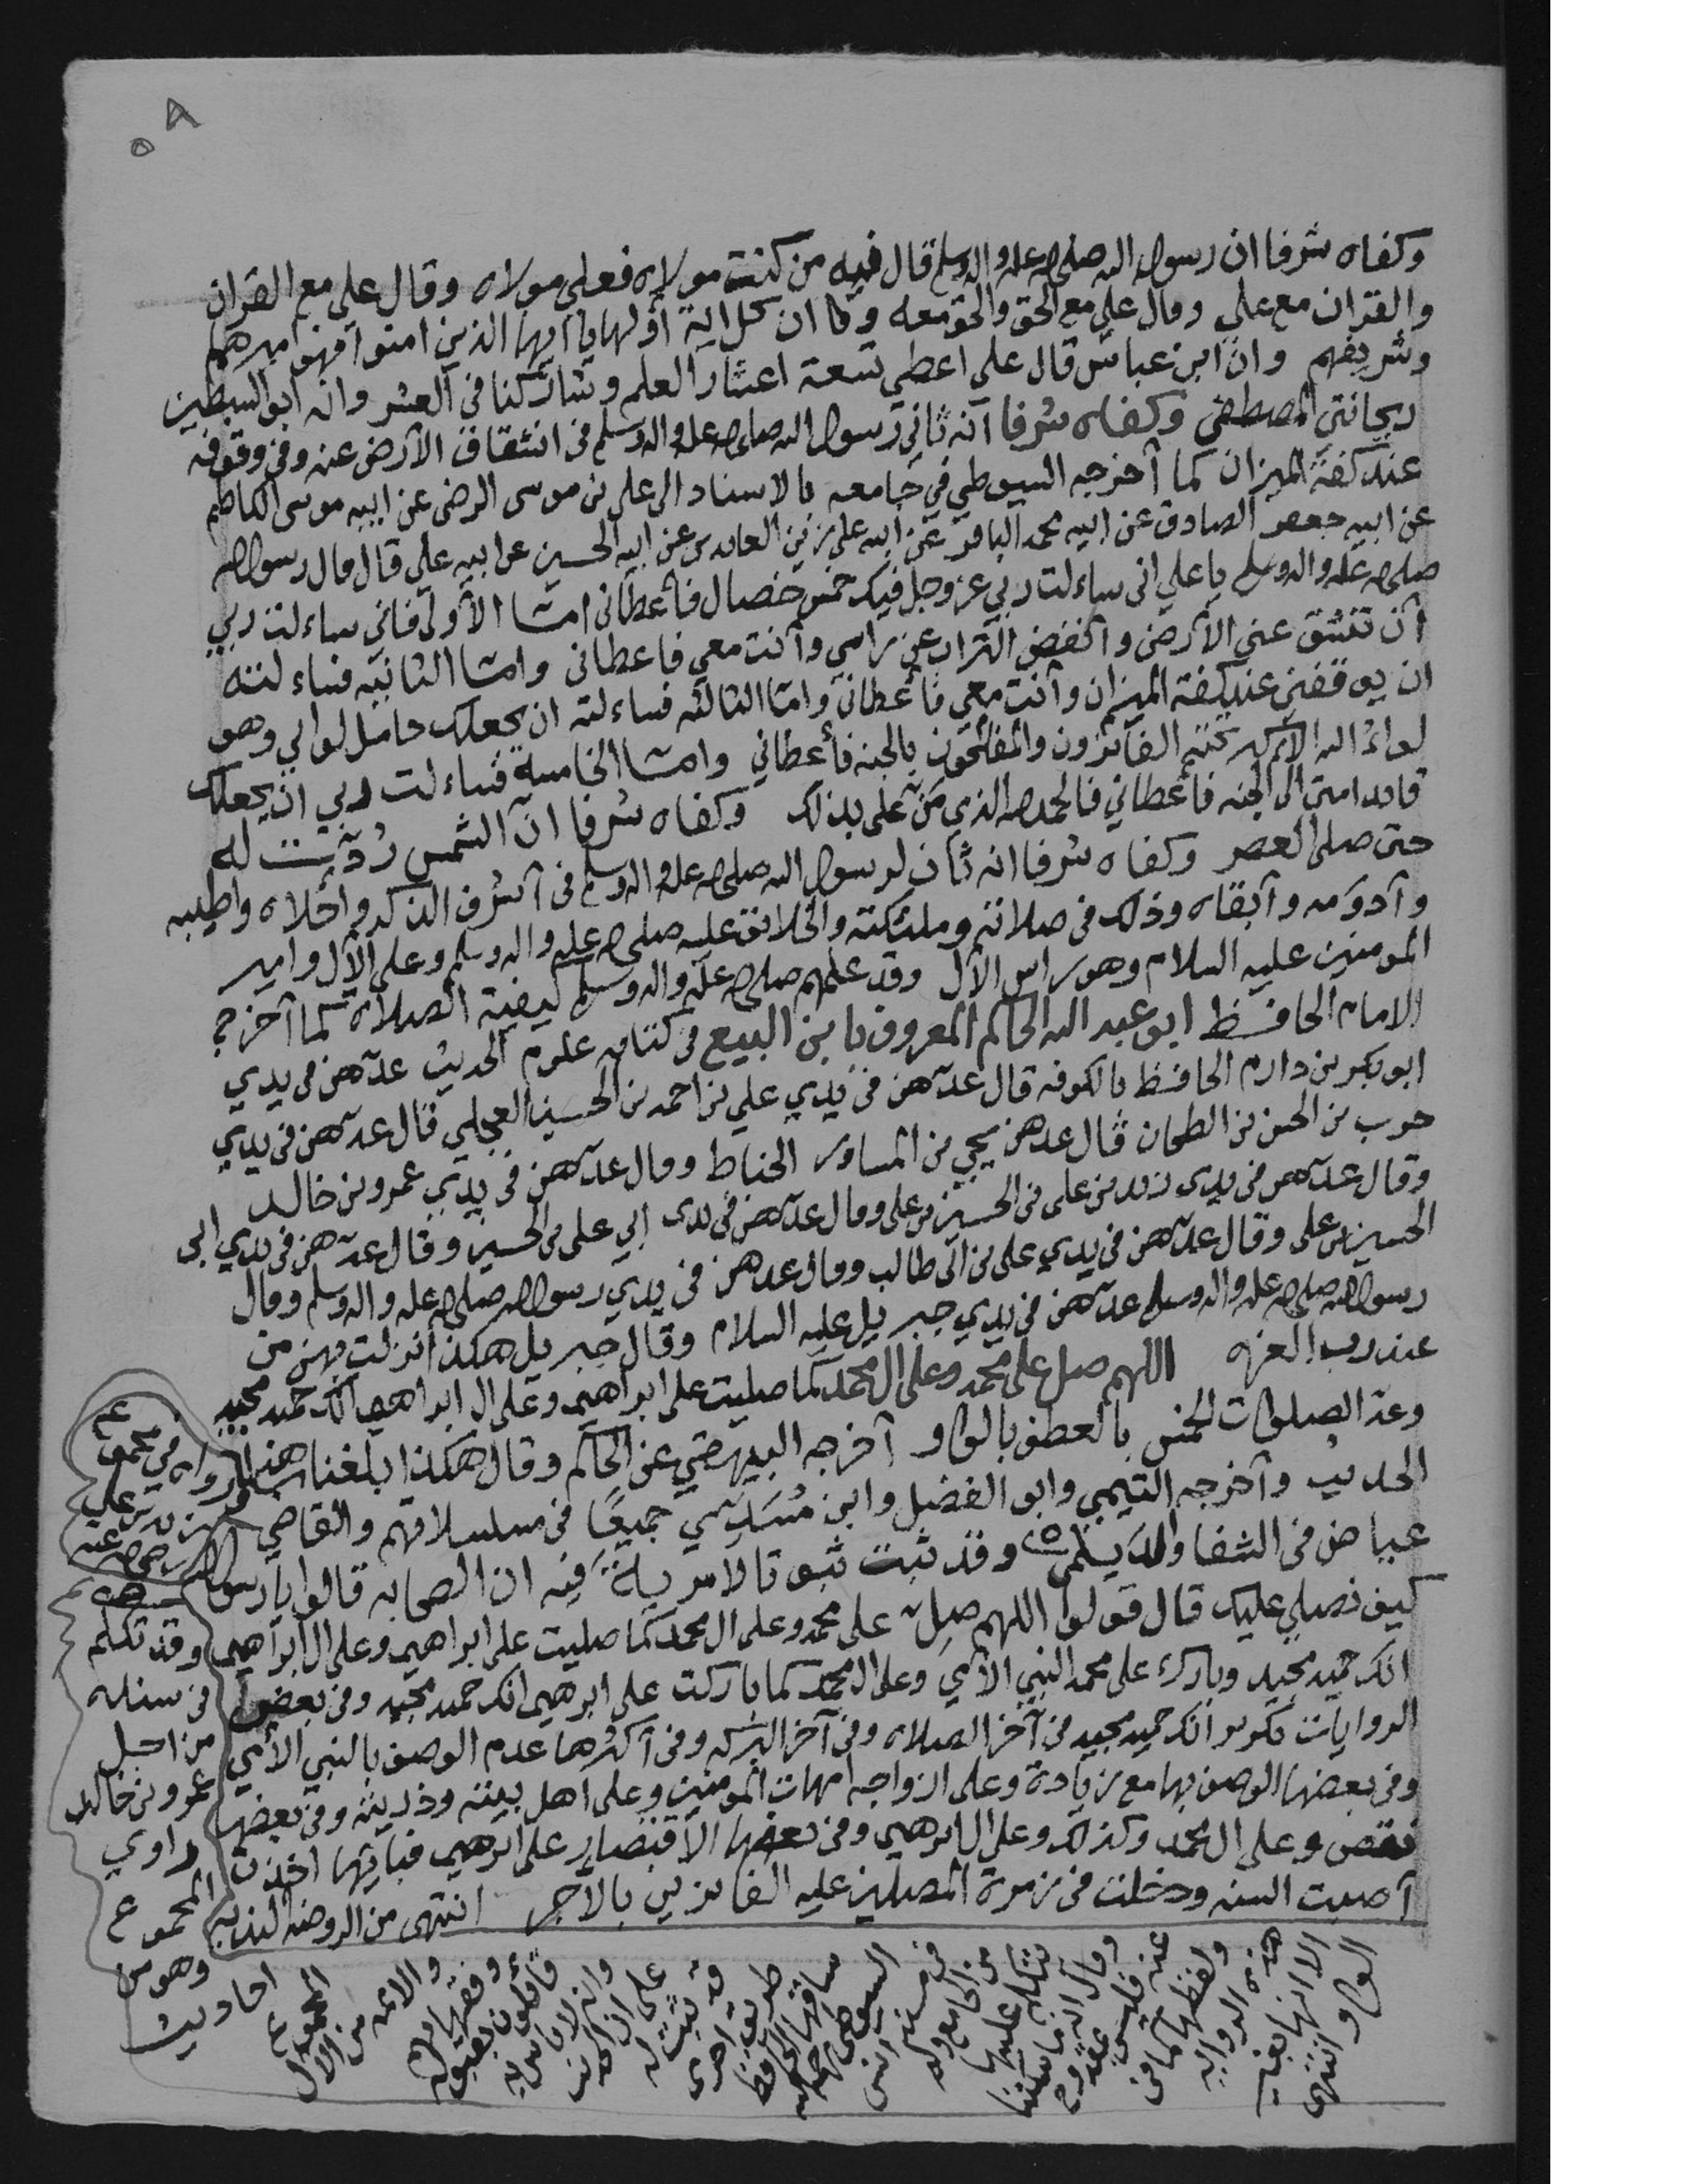 ٥٨
وكفاه شرفا ان رسول الله صلى الله عليه واله وسلم قال فيه من كنت مولاه فعلي مولاه وقال علي مع القران
والقران مع علي وقال علي مع الحق والحق معه وكان كل اية أولها يا ايها الذين امنوا فهو اميرهم
وشريفهم وان ابن عباس قال علي اعطي تسعة اعشار العلم وشاركنا في العشر وانه ابو السبطين
ريحانتي المصطفى وكفاه شرفا انه ثاني رسول الله صلى الله عليه واله وسلم في انشقاق الارض عنه وفي وقوفه
عند كفة الميزان كما أخرجه السيوطي في جامعه بالاسناد الى علي بن موسى الرضى عن ابيه موسى الكاظم
عن ابيه جعفر الصادق عن ابيه محمد الباقر عن ابيه علي زين العابدين عن ابيه الحسين عن ابيه علي قال قال رسول الله
صلى الله عليه واله وسلم يا علي اني ساءلت ربي عز وجل فيك خمس خصال فأعطاني امّا الأولى فاني ساءلت ربي
أن تنشق عني الأرض وانفض التراب عن راسي وأنت معي فاعطاني وامّا الثانيه فساءلته
ان يوقفني عند كفة الميزان وأنت معي فأعطاني وامّا الثالثه فساءلته ان يجعلك حامل لوائي وهو
لواء الله الاكبر تحته الفائزون والمفلحون بالجنه فأعطاني وامّا الخامسة فساءلت ربي ان يجعلك
قائد امتي الى الجنه فأعطاني فالحمد لله الذي منّ علي بذلك وكفاه شرفا انّ الشمس رُدّت له
حتى صلى العصر وكفاه شرفا انه ثان لرسول الله صلى الله عليه واله وسلم في أشرف الذكر وأحلاه واطيبه
وأدومه وأبقاه وذلك في صلاته وملئكته والخلائق عليه صلى الله عليه واله وسلم وعلى الآل وامير
المومنين عليه السلام وهو راس الآل وقد علمهم صلى الله عليه واله وسلم كيفية الصلاة كما أخرج
الامام الحافظ ابو عبد الله الحاكم المعروف بابن البيع في كتابه علوم الحديث عدّهن في يدي
ابو بكر بن دارم الحافظ بالكوفه قال عدّهن في يدي علي بن احمد بن الحسين العجلي قال عدّهن في يدي
حرب بن الحسن بن الطحان قال عدهن يحيى بن المساور الحناط وقال عدّهن في يدي عمرو بن خالد
وقال عدّهن في يدي زيد بن علي بن الحسين بن علي وقال عدّهن في يدي ابي علي بن الحسين وقال عدّهن في يدي ابي
الحسين بن علي وقال عدّهن في يدي علي بن ابي طالب وقال عدهن في يدي رسول الله صلى الله عليه واله وسلم وقال
رسول الله صلى الله عليه واله وسلم عدّهن في يدي جبريل عليه السلام وقال جبريل هكذا انزلت بهن من
عند رب العزه اللهم صل على محمد وعلى ال محمد كما صليت على ابراهيم وعلى ال ابراهيم انك حميد مجيد
وعدّ الصلوات الخمس بالعطف بالواو أخرجه البيهقي عن الحاكم وقال هكذا بلغنا هذا
الحديث وأخرجه التيمي وابو الفضل وابن مُسَدي جميعًا في مسلسلاتهم والقاضي
عياض في الشفا والديلمي وقد ثبت ثبوتا لا مرية فيه ان الصحابه قالوا يا رسول الله
كيف نصلي عليك قال قولوا اللهم صلِ على محمد وعلى ال محمد كما صليت على ابراهيم وعلى ال ابراهيم
انك حميد مجيد وبارك على محمد النبي الأمي وعلى ال محمد كما باركت على ابرهيم انك حميد مجيد وفي بعض
الروايات تكرير انك حميد مجيد في آخر الصلاه وفي آخر البركه وفي أكثرها عدم الوصف بالنبي الأمي
وفي بعضها الوصف بها مع زيادة وعلى ازواجه امهات المومنين وعلى أهل بيته وذريته وفي بعضها
نقص وعلى ال محمد وكذلك وعلى ال ابرهيم وفي بعضها الاقتصار على ابرهيم فبايها اخذت
أصبت السنه ودخلت في زمرة المصلين عليه الفائزين بالأجر انتهى من الروضه النديه
رواه في مجموع
زيد بن علي
وقد تكلم
في سنده
من اجل
عمرو بن خالد
راوي
المجموع
وهو من
احاديث
المجموع
والائمه من الال
وفقهائهم
قائلون بقبوله
وانه لا باس به
على ان الحديث
قد ثبت له
طريق اخرى
ساقها الحافظ
السيوطي
في مسند انس
من الجامع وله
تتكلم عليها
وقال انه ما سكتنا
عنه فليس بمقدوح
ولفظها كما في
هذه الروايه
الا انها بغير
الواو انتهى